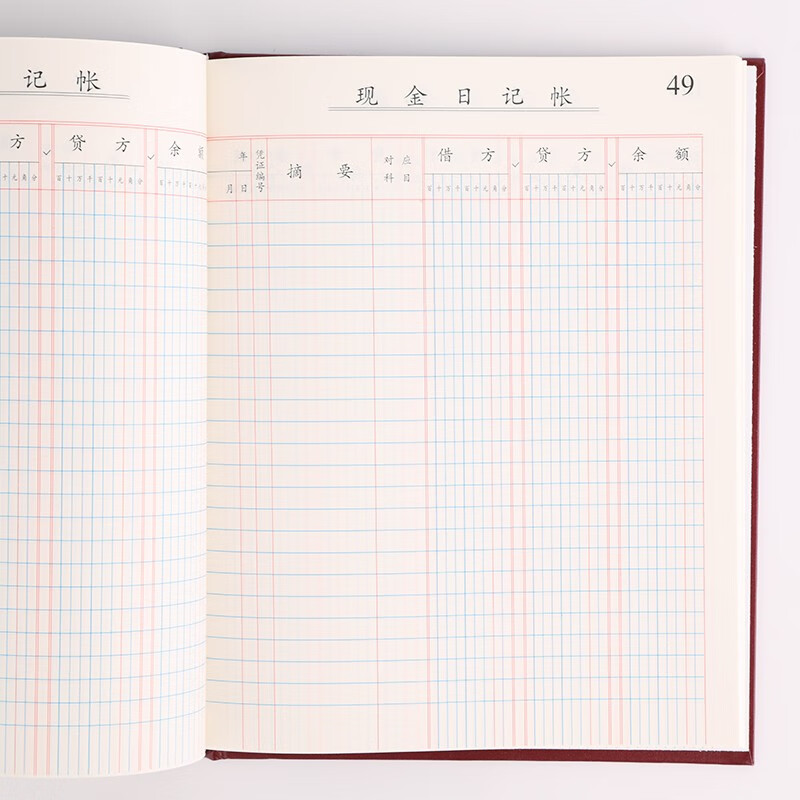 记 帐
方 贷 方 余 额
十元角分 百十万千百十元角分
现 金 日 记 帐
49
年 凭证编号 摘 要 对应科目 借 方 贷 方 余 额
月 日
百十万千百十元角分 百十万千百十元角分 百十万千百十元角分